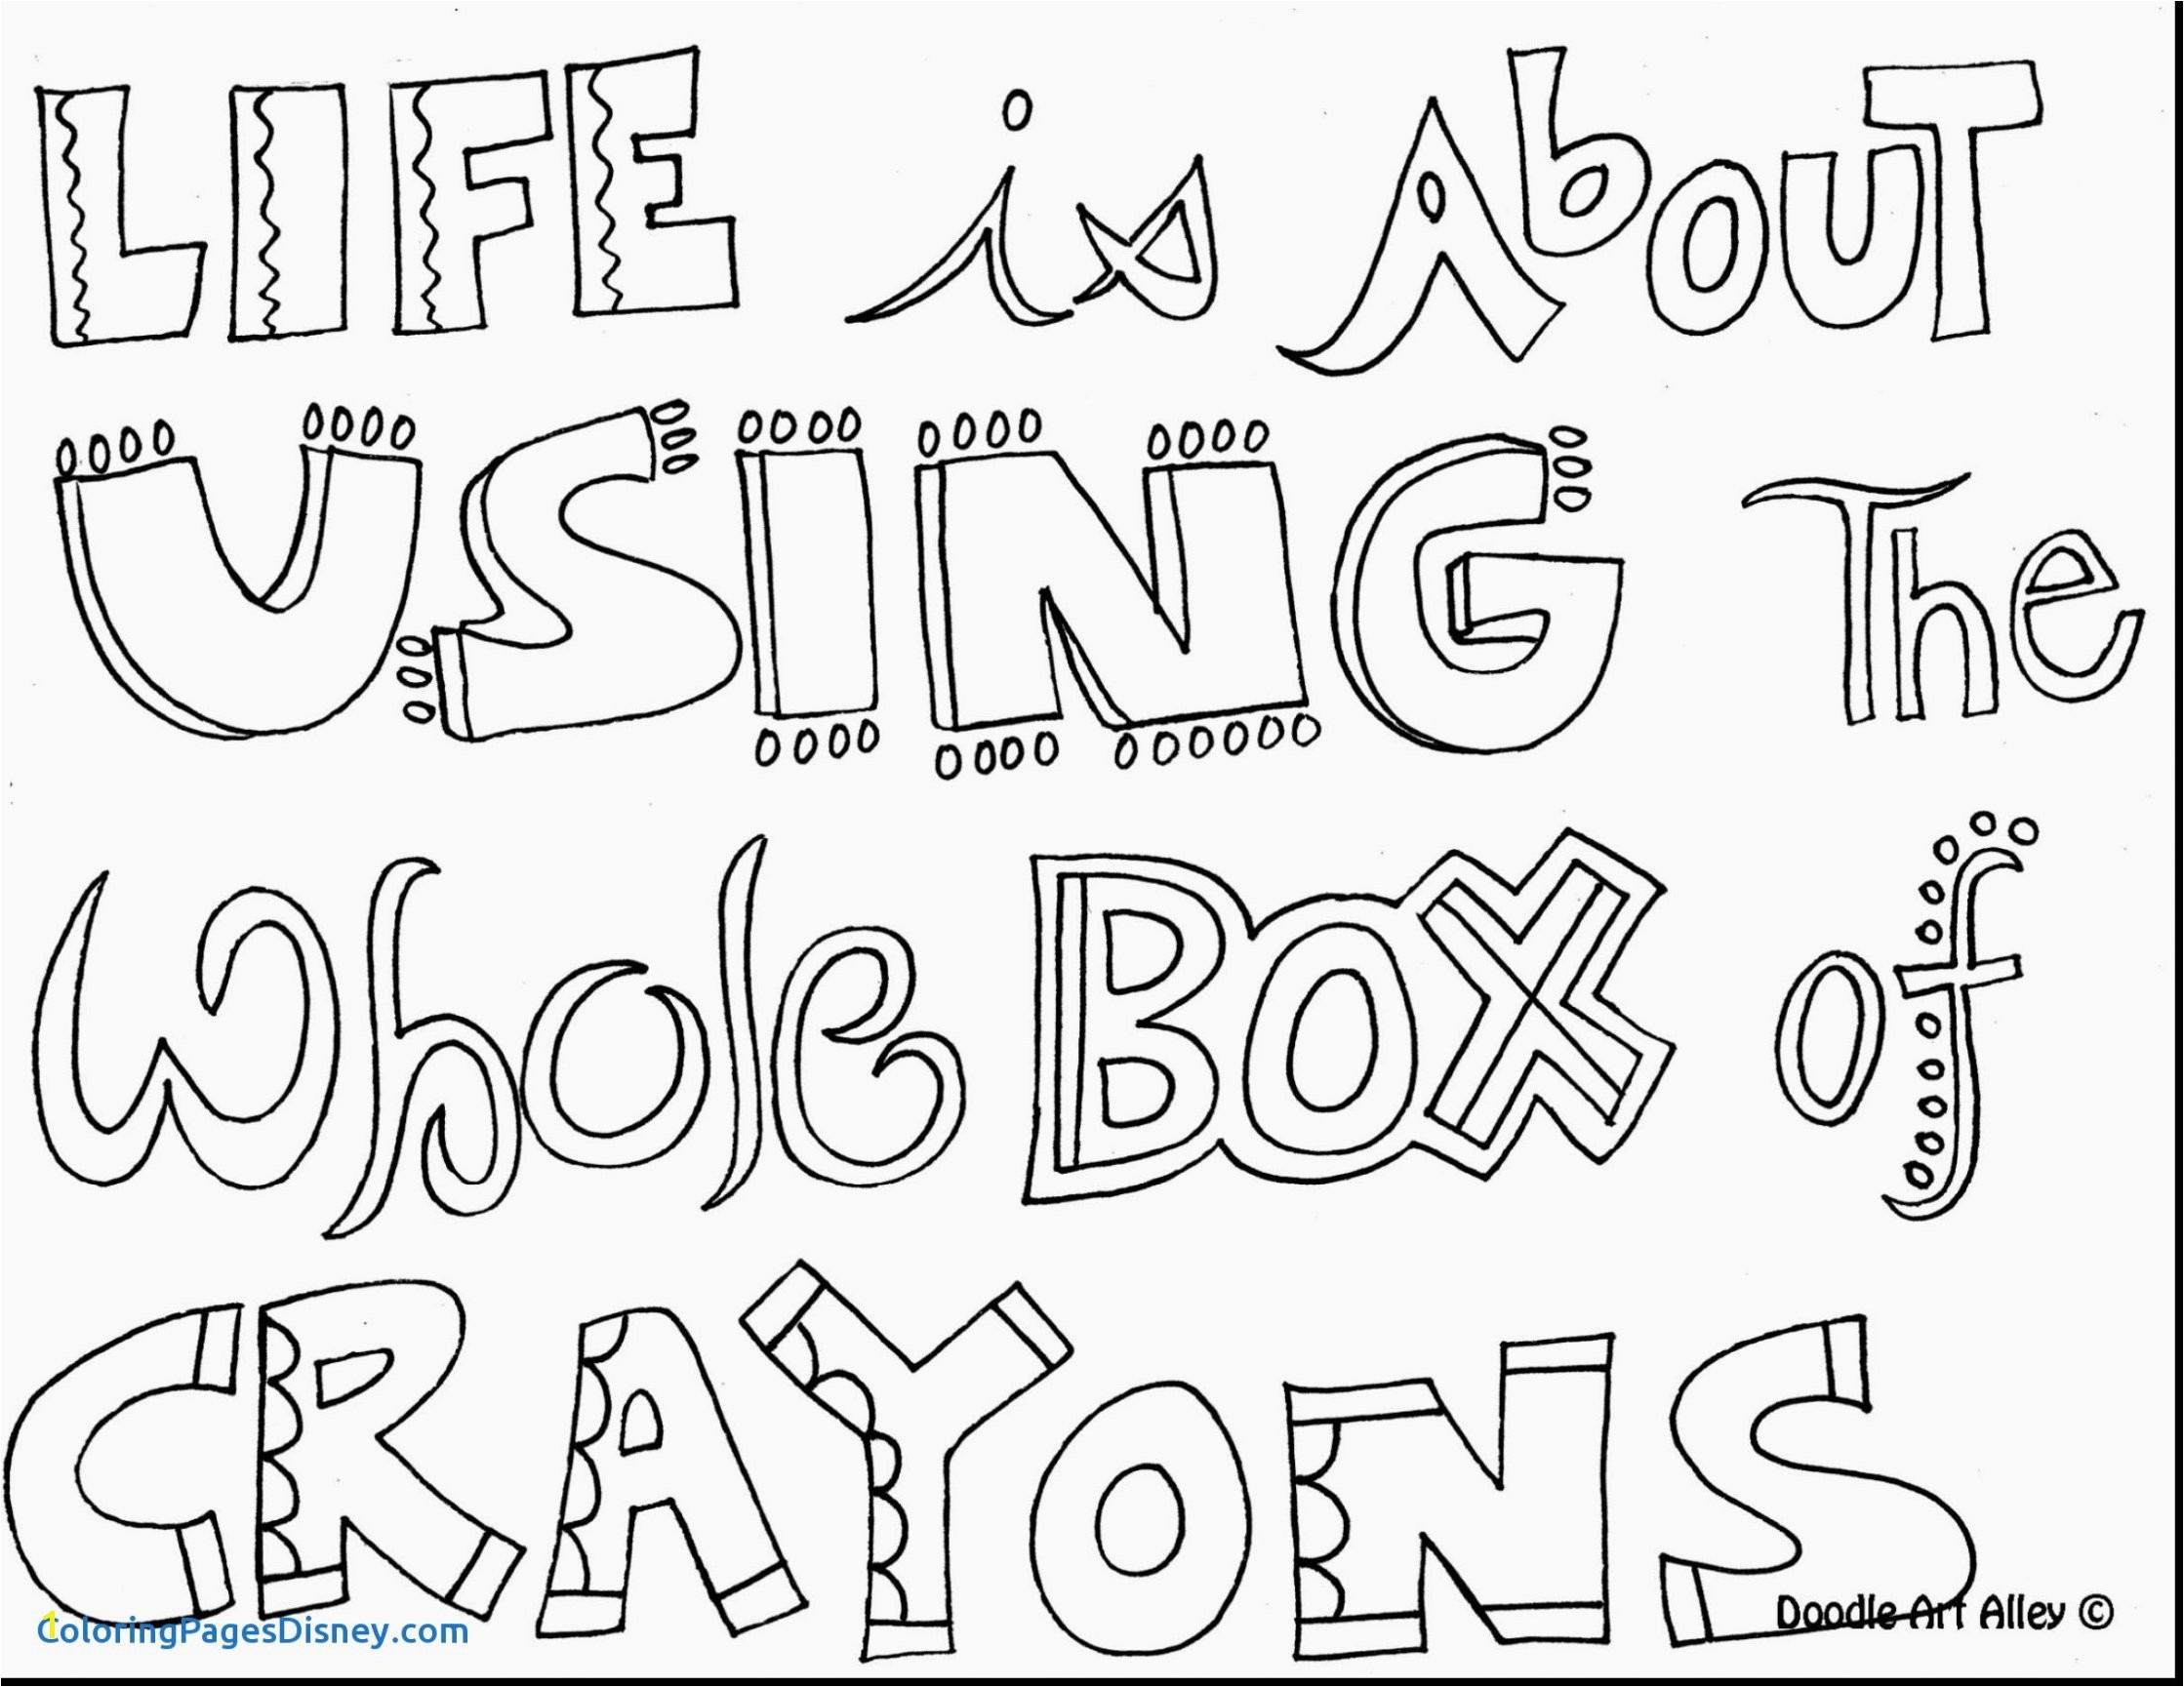 LIFE is AboUT
USING The
Whole BOX of
CRAYONS
ColoringPagesDisney.com
Doodle Art Alley ©